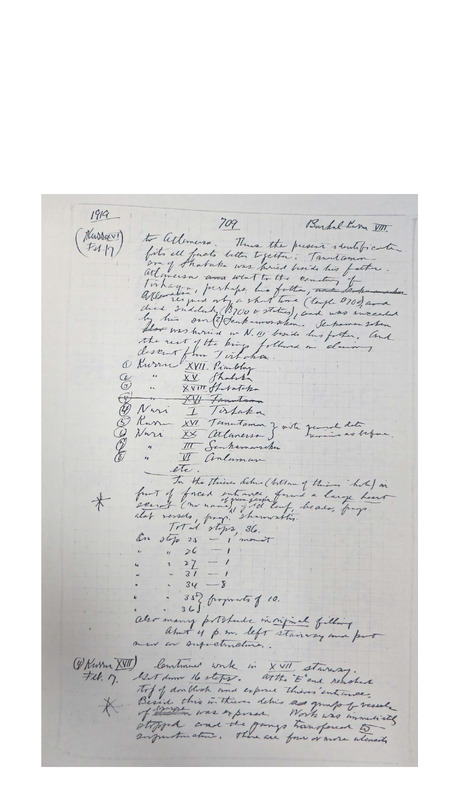 1919
709
Barkal Kurru VIII.
(Kurru XVI)
Feb. 17
to Atlanersa. Thus the present identification
fits all facts better together. Tanutaman
son of Shabaka was buried beside his father.
Atlanersa went to the cemetery of
Tirhaqa, perhaps, his father,
reigned only a short time (temple B700) and
died suddenly (B700 + statues), and was succeeded
by his son (?) Senkamanseken. Senkamanseken
was buried in N. III beside his father. And
the rest of the kings followed in
descent from Tirhaka.
① Kurru XVII Piankhy
② " XV Shabaka
③ " XVIII Shabataka
④ Nuri I Tirhaka
⑤ Kurru XVI Tanutaman } note ground date
⑥ Nuri XX Atlanersa } remains as before.
⑦ " III Senkamanseken
⑧ " VI Anlaman
etc.
In the thieves debris (bottom of thieves' hole) in
front of forced entrance, found a large heart
scarab (no name), gold leaf, beads, frags
alab vessels, frags. shawabtis.
Total steps, 36.
On step 25 — 1
" " 26 — 1
" " 27 — 1
" " 31 — 1
" " 34 — 8
" " 35 } fragments of 10.
" " 36 }
Also many potsherds in original filling
About 4 p.m. left stairway and put
men on superstructure.
Kurru XVII
Feb. 17.
Continued work in XVII stairway.
Got down 16 steps. At the E end reached
top of doorblock and exposed thieves entrance.
Beside this in thieves debris a group of vessels
of bronze was exposed. Work was immediately
stopped and the gangs transferred to
superstructure. There are four or more